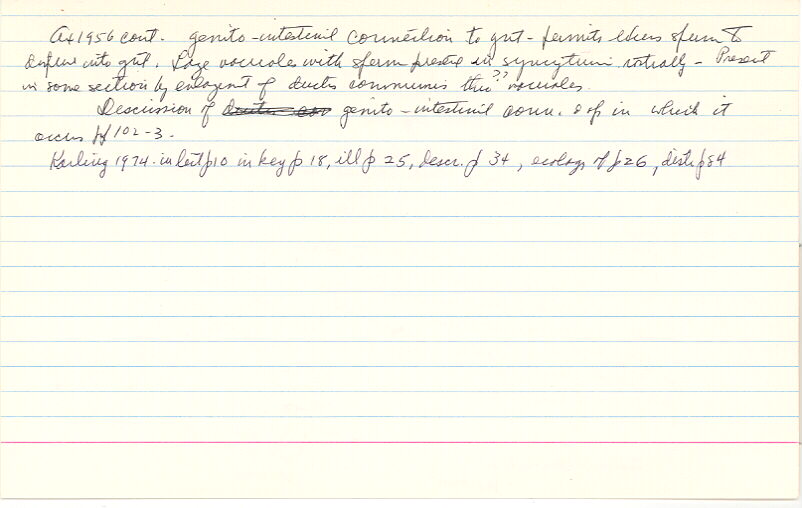 Ax 1956 cont. genito-intestinal connection to gut - permits excess sperm to
diffuse into gut. Large vacuoles with sperm present in syncytium rostrally - Present
in some section by enlargemt of ductus communis thin?? vacuoles.
Discussion of genito-intestinal conn. & sp in which it
occurs pp 102-3.
Karling 1974. in list p10 in key p 18, ill p 25, descr. p 34, ecology of p26, distr p84